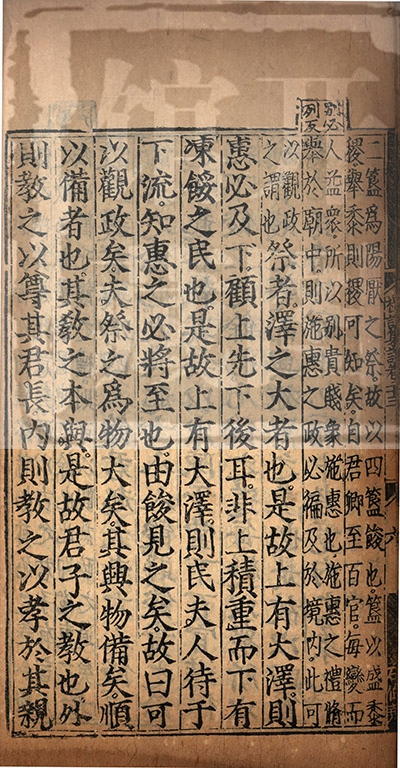 别必
列反
二簋爲陽厭之祭。故以四簋餕也。簋以盛黍
稷舉黍則稷可知矣。自君卿至百官。每變而
人益衆所以别貴賤象施惠也施惠之禮將
舉於廟中。則施惠之政必徧及於境内。此可
以觀政
之謂也
祭者澤之大者也是故上有大澤則
惠必及下。顧上先下後耳。非上積重而下有
凍餒之民也。是故上有大澤。則民夫人待于
下流。知惠之必將至也。由餕見之矣故曰可
以觀政矣。夫祭之爲物大矣。其興物備矣。順
以備者也。其敎之本與。是故君子之教也。外
則教之以尊其君長内則教之以孝於其親